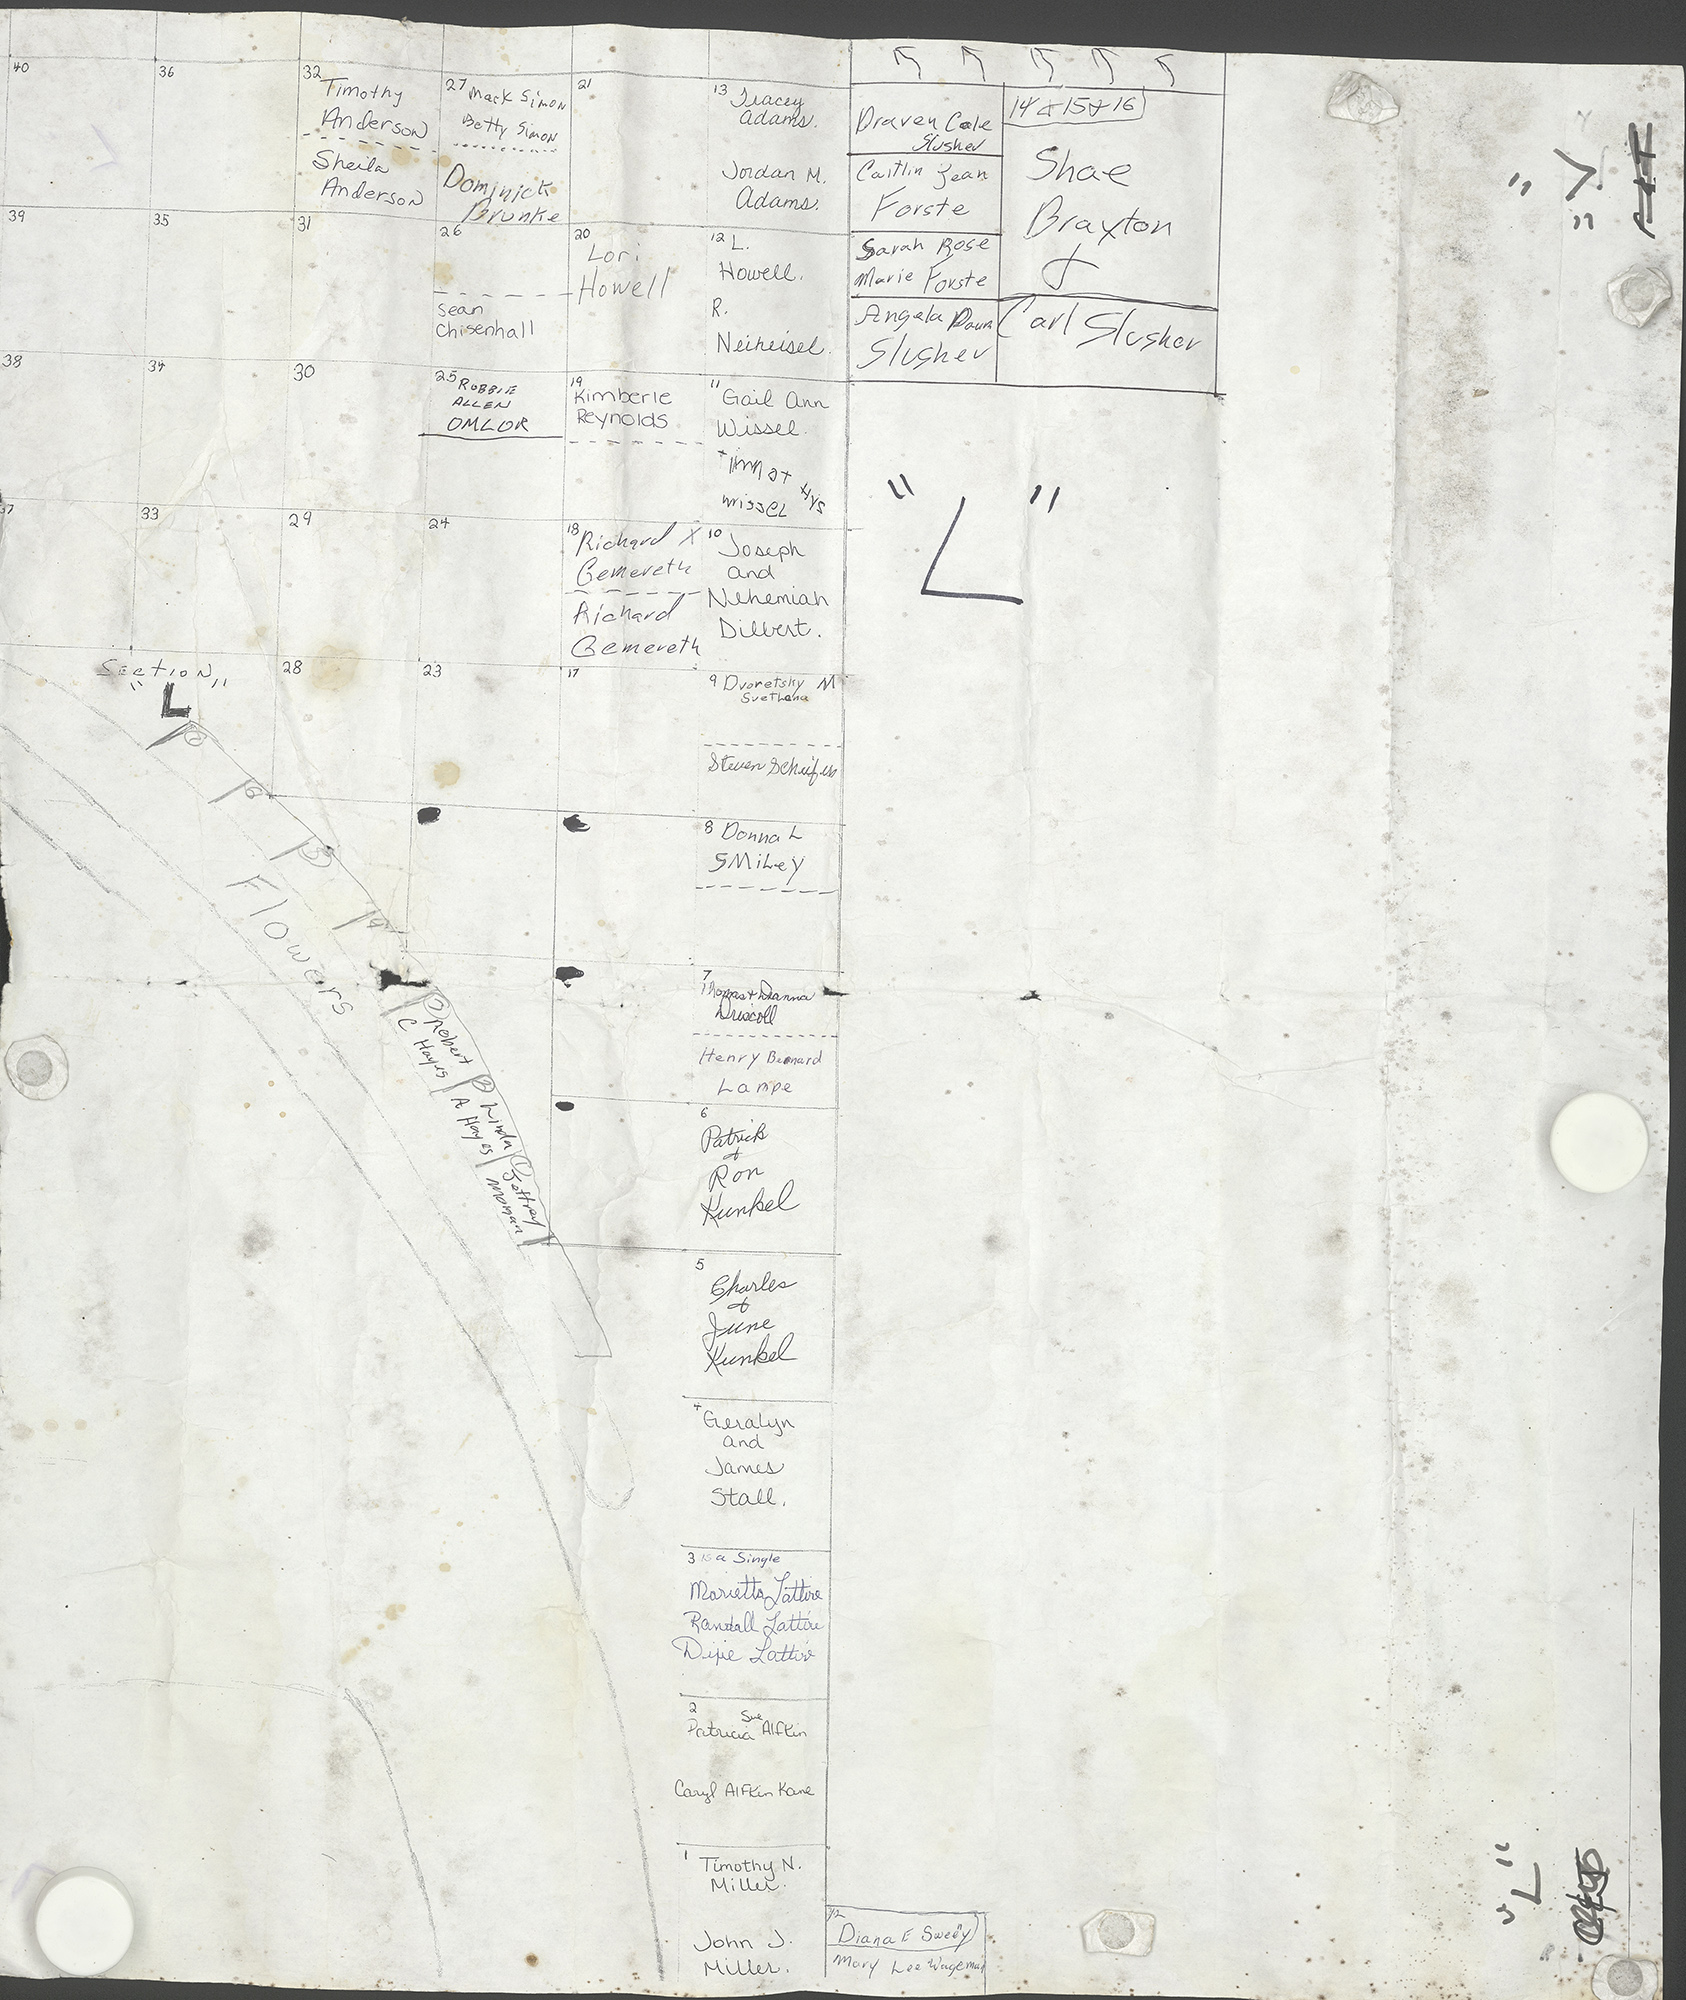 40
36
32
Timothy
Anderson
Sheila
Anderson
27 Mack Simon
Betty Simon
Dominick
Brunke
21
13 Tracey
Adams.
Jordan M.
Adams.
Draven Cole
Slusher
Caitlin Jean
Forste
Sarah Rose
Marie Forste
Angela Dawn
Slusher
14 & 15 & 16
Shae
Braxton
&
Carl Slusher
39
35
31
26
Sean
Chisenhall
20
Lori
Howell
12 L.
Howell.
R.
Neiheisel.
38
34
30
25 ROBBIE
ALLEN
OMLOR
19
Kimberle
Reynolds
11
Gail Ann
Wissel.
wissel
37
33
29
24
18 Richard X
Gemereth
Richard
Gemereth
10
Joseph
and
Nehemiah
Dilbert.
"L"
Section
"L"
28
23
17
9 Dvoretsky M
Svetlana
Steven
8 Donna L
SMiLey
7
Thomas + Dianna
Driscoll
Henry Bernard
Lampe
6
Patrick
&
Ron
Kunkel
5
Charles
&
June
Kunkel
4
Geralyn
and
James
Stall.
3 is a Single
Marietta Lattire
Randall Lattire
Dixie Lattire
2
Sue
Patricia Alfkin
Caryl Alfkin Kane
1
Timothy N.
Miller.
John J.
Miller.
1/2
Diana E Sweey
Mary Lee Wageman
6
5
4
Flowers
3 Robert
C Hayes
2 Linda
A Hayes
1 Jeffrey
Moman
"V"
"L"